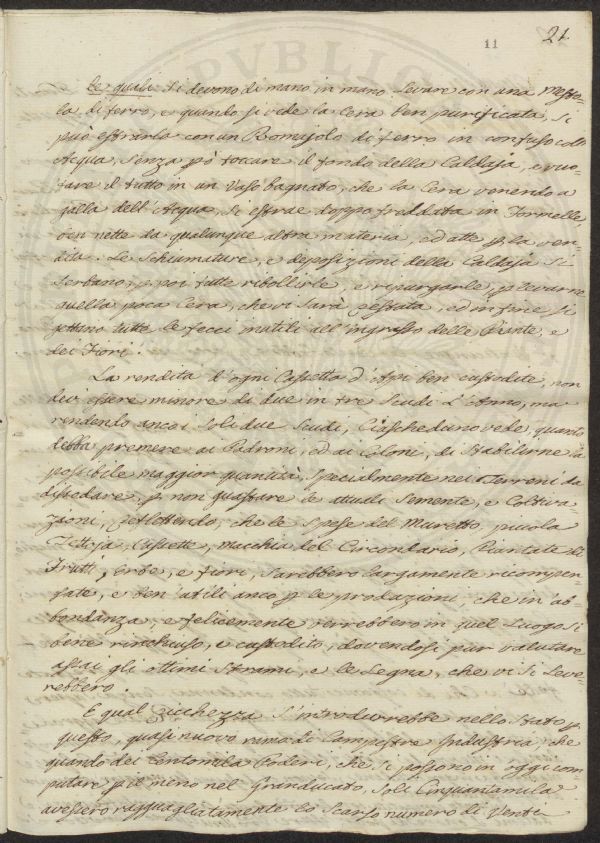 11
21
le quali si devono di mano in mano levare con una Mesto-
la di ferro, e quando si vede la Cera ben purificata, si
può estrarla con un Romajolo di ferro in confuso coll'
Acqua, senza però toccare il fondo della Caldaja, e vuo-
tare il tutto in un Vaso bagnato, che la Cera venendo a
galla dell'Acqua, si estrae doppo freddata in Formelle,
ben nette da qualunque altra materia, ed atte p. la ven-
dita. Le Schiumature, e deposizioni della Caldaja si
serbano, p. poi tutte ribollirle, e ripurgarle, p. levarne
quella poca Cera, che vi sarà restata, ed in fine si
gettano tutte le fecci inutili all'ingrasso delle Piante, e
dei Fiori.
La rendita d'ogni Cassetta d'Api ben custodite, non
dev'essere minore di due in tre Scudi l'Anno, ma
rendendo anco i soli due Scudi, Ciascheduno vede quanto
debba premere ai Padroni, ed ai Coloni, di stabilirne la
possibile maggior quantità, specialmente nei Terreni da
dissodare, p. non guastare le attuali Semente, e Coltiva-
zioni, reflettendo, che le spese del Muretto, piccola
Tettoja, Cassette, Macchia del Circondario, Piantate di
Frutti, Erbe, e fiori, sarebbero largamente ricompen-
sate, e ben'utili anco p. le produzioni, che in ab-
bondanza, e felicemente verrebbero in quel Luogo sì
bene rinchiuso, e custodito, dovendosi pur valutare
assai gli ottimi Strami, e le Legna, che vi si leve-
rebbero.
E qual Ricchezza s'introdurrebbe nello Stato p.
questo, quasi nuovo ramo di Campestre Industria, che
quando dei Centomila Poderi, che si possono in oggi com-
putare p. il meno nel Granducato, soli Cinquantamila
avessero ragguagliatamente lo scarso numero di Venti